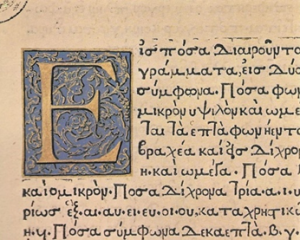 Εἰς πόσα Διαιροῦντ
γράμματα, εἰς δύο
σύμφωνα. Πόσα φων
μικρὸν υψιλὸν καὶ ωμε
ται τὰ ἑπτὰ φωνήεντα
βραχέα καὶ εἰς Δίχρον
η. καὶ ωμέγα. Πόσα
καὶ ομικρὸν. Πόσα Δίχρονα τρία. α. ι.
ρίως ἓξ. αι. αυ. ει. ευ. οι. ου. καταχρηστικ
η. Πόσα σύμφωνα Δεκαεπτά. β. γ.